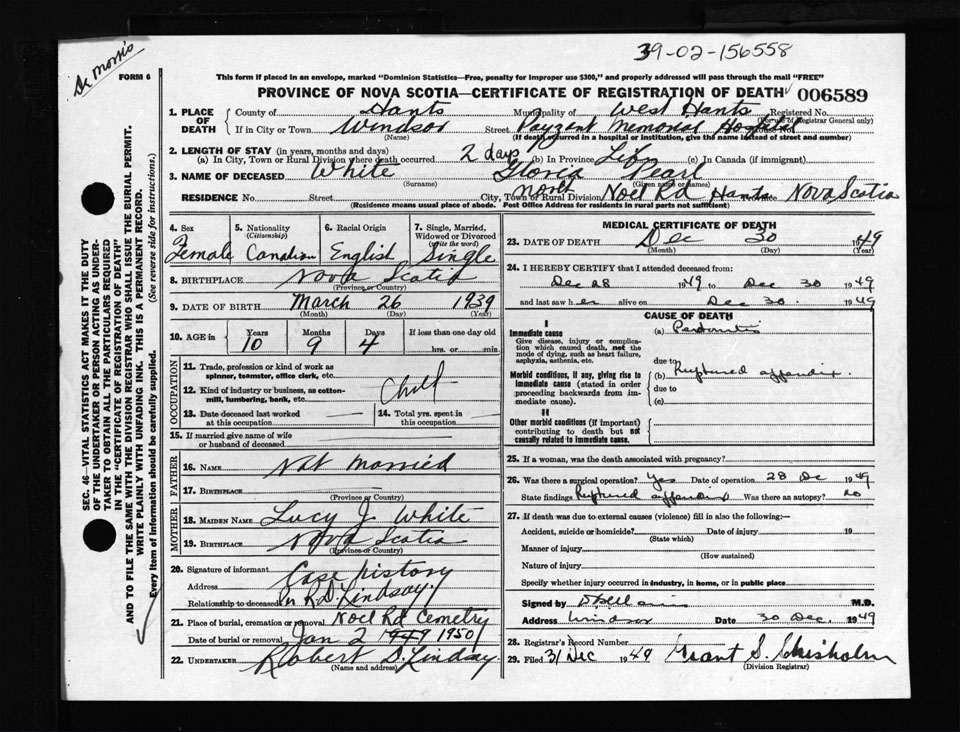 39-02-156558
Dr Morris
FORM 6
This form if placed in an envelope, marked "Dominion Statistics—Free, penalty for improper use $300," and properly addressed will pass through the mail "FREE"
PROVINCE OF NOVA SCOTIA—CERTIFICATE OF REGISTRATION OF DEATH 006589
SEC. 46—VITAL STATISTICS ACT MAKES IT THE DUTY
OF THE UNDERTAKER OR PERSON ACTING AS UNDER-
TAKER TO OBTAIN ALL THE PARTICULARS REQUIRED
IN THE "CERTIFICATE OF REGISTRATION OF DEATH"
AND TO FILE THE SAME WITH THE DIVISION REGISTRAR WHO SHALL ISSUE THE BURIAL PERMIT.
WRITE PLAINLY WITH UNFADING INK. THIS IS A PERMANENT RECORD.
Every item of Information should be carefully supplied. (See reverse side for instructions.)
1. PLACE OF DEATH
County of Hants Municipality of West Hants Registered No.
(For use of Registrar General only)
If in City or Town Windsor Street Payzant Memorial Hospital
(Name) (If death occurred in a hospital or institution, give the name instead of street and number)
2. LENGTH OF STAY (in years, months and days)
(a) In City, Town or Rural Division where death occurred 2 days (b) In Province Life (c) In Canada (if immigrant)
3. NAME OF DECEASED White Gloria Pearl
(Surname) (Given name or names)
RESIDENCE No. Street City, Town or Rural Division North Noel Rd Hants Province Nova Scotia
(Residence means usual place of abode. Post Office Address for residents in rural parts not sufficient)
4. Sex
Female
5. Nationality
(Citizenship)
Canadian
6. Racial Origin
English
7. Single, Married,
Widowed or Divorced
(write the word)
Single
8. BIRTHPLACE Nova Scotia
(Province or Country)
9. DATE OF BIRTH March 26 1939
(Month) (Day) (Year)
10. AGE in Years Months Days If less than one day old
10 9 4 hrs. or min.
OCCUPATION
11. Trade, profession or kind of work as
spinner, teamster, office clerk, etc.
12. Kind of industry or business, as cotton-
mill, lumbering, bank, etc.
Child
13. Date deceased last worked
at this occupation
14. Total yrs. spent in
this occupation
15. If married give name of wife
or husband of deceased
FATHER
16. NAME Not married
17. BIRTHPLACE
(Province or Country)
MOTHER
18. MAIDEN NAME Lucy J White
19. BIRTHPLACE Nova Scotia
(Province or Country)
20. Signature of informant Case history
Address
Relationship to deceased per R.D. Lindsay
21. Place of burial, cremation or removal Noel Rd Cemetry
Date of burial or removal Jan 2 1949 1950
22. UNDERTAKER Robert D. Lindsay
(Name and address)
MEDICAL CERTIFICATE OF DEATH
23. DATE OF DEATH Dec 30 1949
(Month) (Day) (Year)
24. I HEREBY CERTIFY that I attended deceased from:
Dec 28 1949 to Dec 30 1949
and last saw her alive on Dec 30. 1949
CAUSE OF DEATH
I
Immediate cause
Give disease, injury or complica-
tion which caused death, not the
mode of dying, such as heart failure,
asphyxia, asthenia, etc.
(a) Peritonitis
due to
Morbid conditions, if any, giving rise to
immediate cause (stated in order
proceeding backwards from im-
mediate cause).
(b) Ruptured appendix.
due to
(c)
II
Other morbid conditions (if important)
contributing to death but not
causally related to immediate cause.
25. If a woman, was the death associated with pregnancy?
26. Was there a surgical operation? Yes Date of operation 28 Dec 1949
State findings Ruptured appendix Was there an autopsy? no
27. If death was due to external causes (violence) fill in also the following:—
Accident, suicide or homicide? Date of injury 19
(State which)
Manner of injury
(How sustained)
Nature of injury
Specify whether injury occurred in industry, in home, or in public place
Signed by M.D.
Address Windsor Date 30 Dec. 1949
28. Registrar's Record Number
29. Filed 31 Dec 1949 Grant S. Chisholm
(Division Registrar)